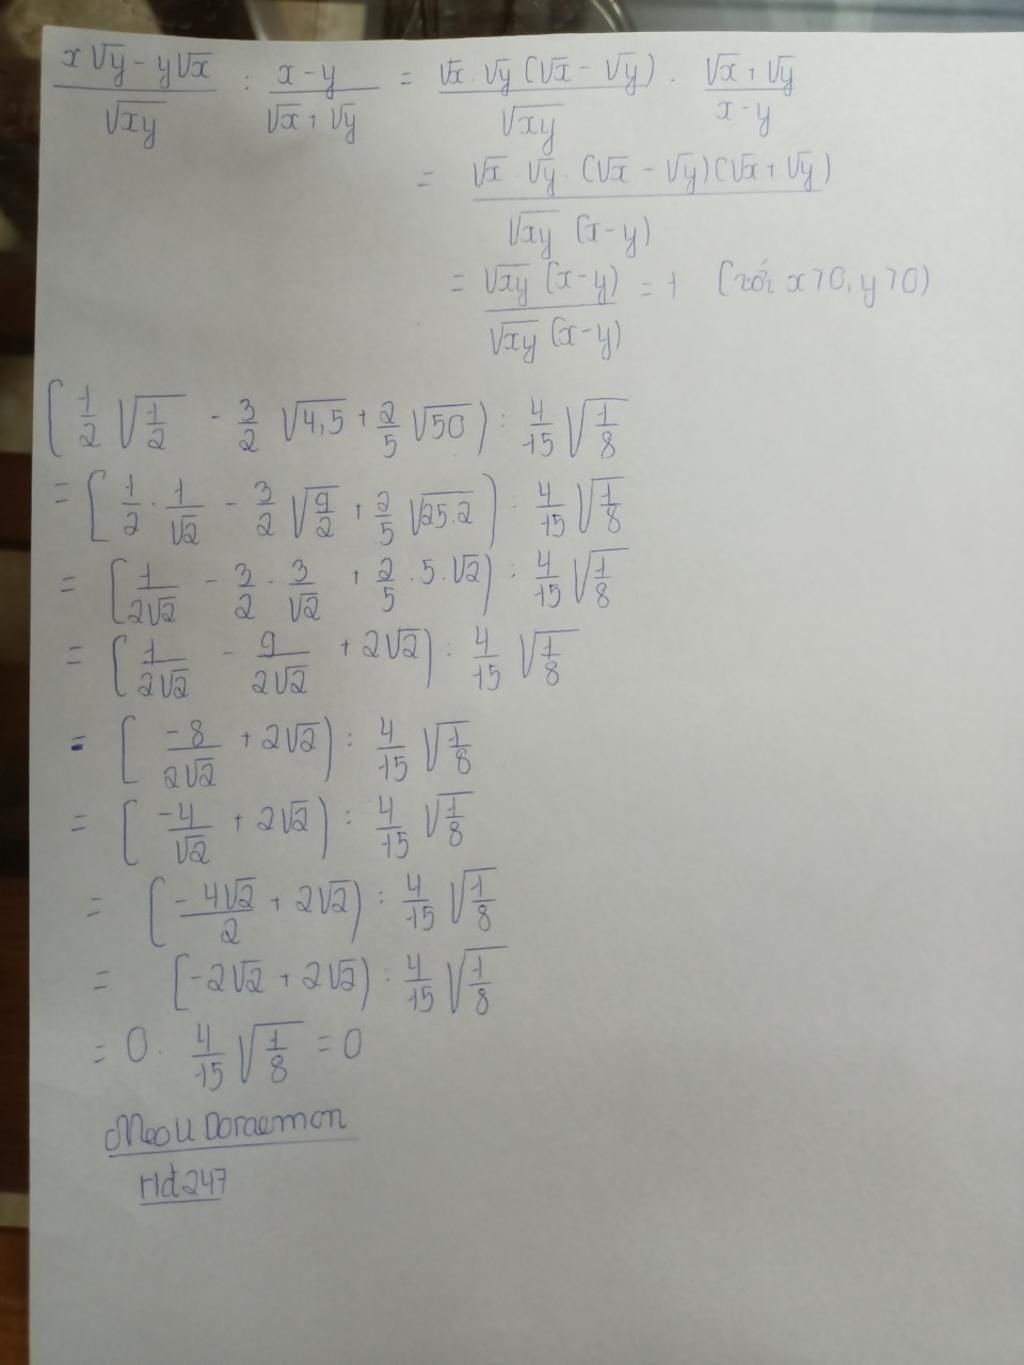 x√y - y√x / √xy : x - y / √x + √y = √x . √y (√x - √y) / √xy . √x + √y / x - y
= √x . √y . (√x - √y)(√x + √y) / √xy (x - y)
= √xy (x - y) / √xy (x - y) = 1 (với x>0, y>0)
(1/2 √1/2 - 3/2 √4,5 + 2/5 √50) : 4/15 √1/8
= (1/2 . 1/√2 - 3/2 √9/2 + 2/5 √25.2) : 4/15 √1/8
= (1/2√2 - 3/2 . 3/√2 + 2/5 . 5 . √2) : 4/15 √1/8
= (1/2√2 - 9/2√2 + 2√2) : 4/15 √1/8
= (-8/2√2 + 2√2) : 4/15 √1/8
= (-4/√2 + 2√2) : 4/15 √1/8
= (-4√2/2 + 2√2) : 4/15 √1/8
= (-2√2 + 2√2) : 4/15 √1/8
= 0 . 4/15 √1/8 = 0
MeoU Doraemon
Hđ247